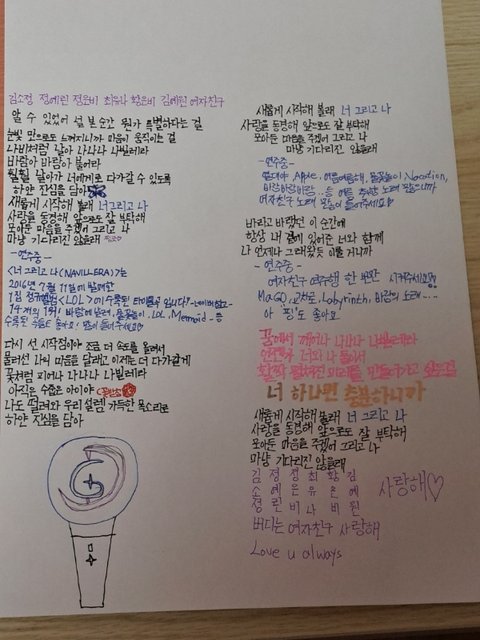 김소정 정예린 정은비 최유나 황은비 김예원 여자친구
알 수 있었어 널 본 순간 뭔가 특별하다는 걸
눈빛 만으로도 느껴지니까 마음이 움직이는 걸
나비처럼 날아 나나나 나빌레라
바람아 바람아 불어라
훨훨 날아가 너에게로 다가갈 수 있도록
하얀 진심을 담아
새롭게 시작해 볼래 너 그리고 나
사랑을 동경해 앞으로도 잘 부탁해
모아둔 마음을 주겠어 그리고 나
마냥 기다리진 않을래
-연주중-
<너 그리고 나 (NAVILLERA)는
2016년 7월 11일에 발매한
1집 정규앨범 <LOL>에 수록된 타이틀곡 입니다!
LOL, Mermaid 등
수록된 곡들도 좋아요! 많이 들어주세요
다시 선 시작점이야 조금 더 속도를 올려서
물러선 나의 마음을 달래고 이제는 더 다가갈게
꽃처럼 피어나 나나나 나빌레라
아직은 수줍은 아이야
나도 떨려와 우리 설렘 가득한 목소리로
하얀 진심을 담아
새롭게 시작해 볼래 너 그리고 나
사랑을 동경해 앞으로도 잘 부탁해
모아둔 마음을 주겠어 그리고 나
마냥 기다리진 않을래
-연주중-
Apple, 여름여름해, Vacation,
바람바람바람 ... 등
여자친구 노래 많이 들어주세요
바라고 바랬던 이 순간에
항상 내 곁에 있어준 너와 함께
나 언제나 그래왔듯 이룰 거니까
-연주중-
여자친구 역주행 한 번만 시켜주세요
MAGO, 교차로, Labyrinth, 바람의 노래....
도 좋아요
꿈에서 깨어나 나나나 나빌레라
언젠가 너와 나 둘이서
활짝 펼쳐진 미래를 만들어가고 싶은걸
너 하나면 충분하니까
새롭게 시작해 볼래 너 그리고 나
사랑을 동경해 앞으로도 잘 부탁해
모아둔 마음을 주겠어 그리고 나
마냥 기다리진 않을래
김 정 정 최 황 김
소 예 은 유 은 예
정 린 비 나 비 원
사랑해♡
버디는 여자친구 사랑해
Love u always